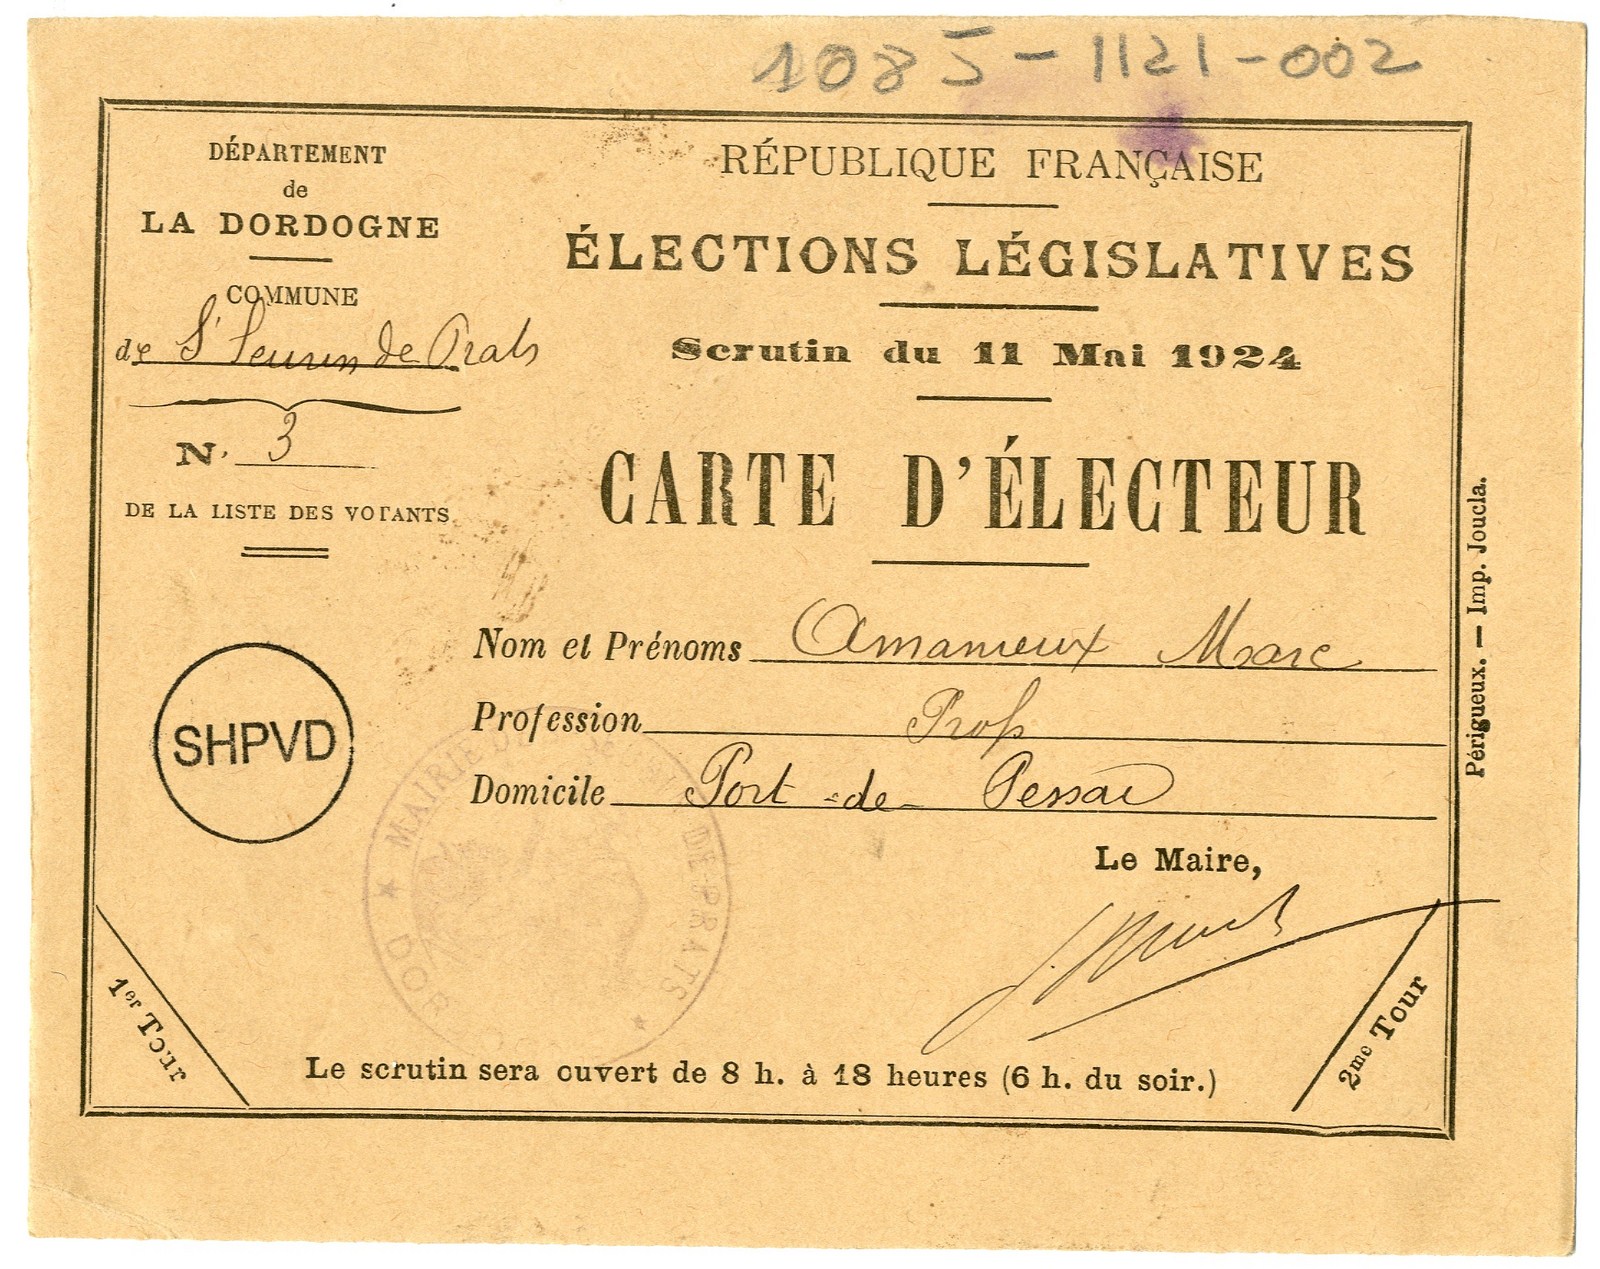 1085-1121-002
DÉPARTEMENT
de
LA DORDOGNE
COMMUNE
de St Seurin de Prats
N. 3
DE LA LISTE DES VOTANTS
SHPVD
RÉPUBLIQUE FRANÇAISE
ÉLECTIONS LÉGISLATIVES
Scrutin du 11 Mai 1924
CARTE D'ÉLECTEUR
Nom et Prénoms Amanieux Marc
Profession Prop
Domicile Port-de-Pessac
MAIRIE DE PRATS
Le Maire,
1er Tour
2me Tour
Le scrutin sera ouvert de 8 h. à 18 heures (6 h. du soir.)
Périgueux. — Imp. Joucla.